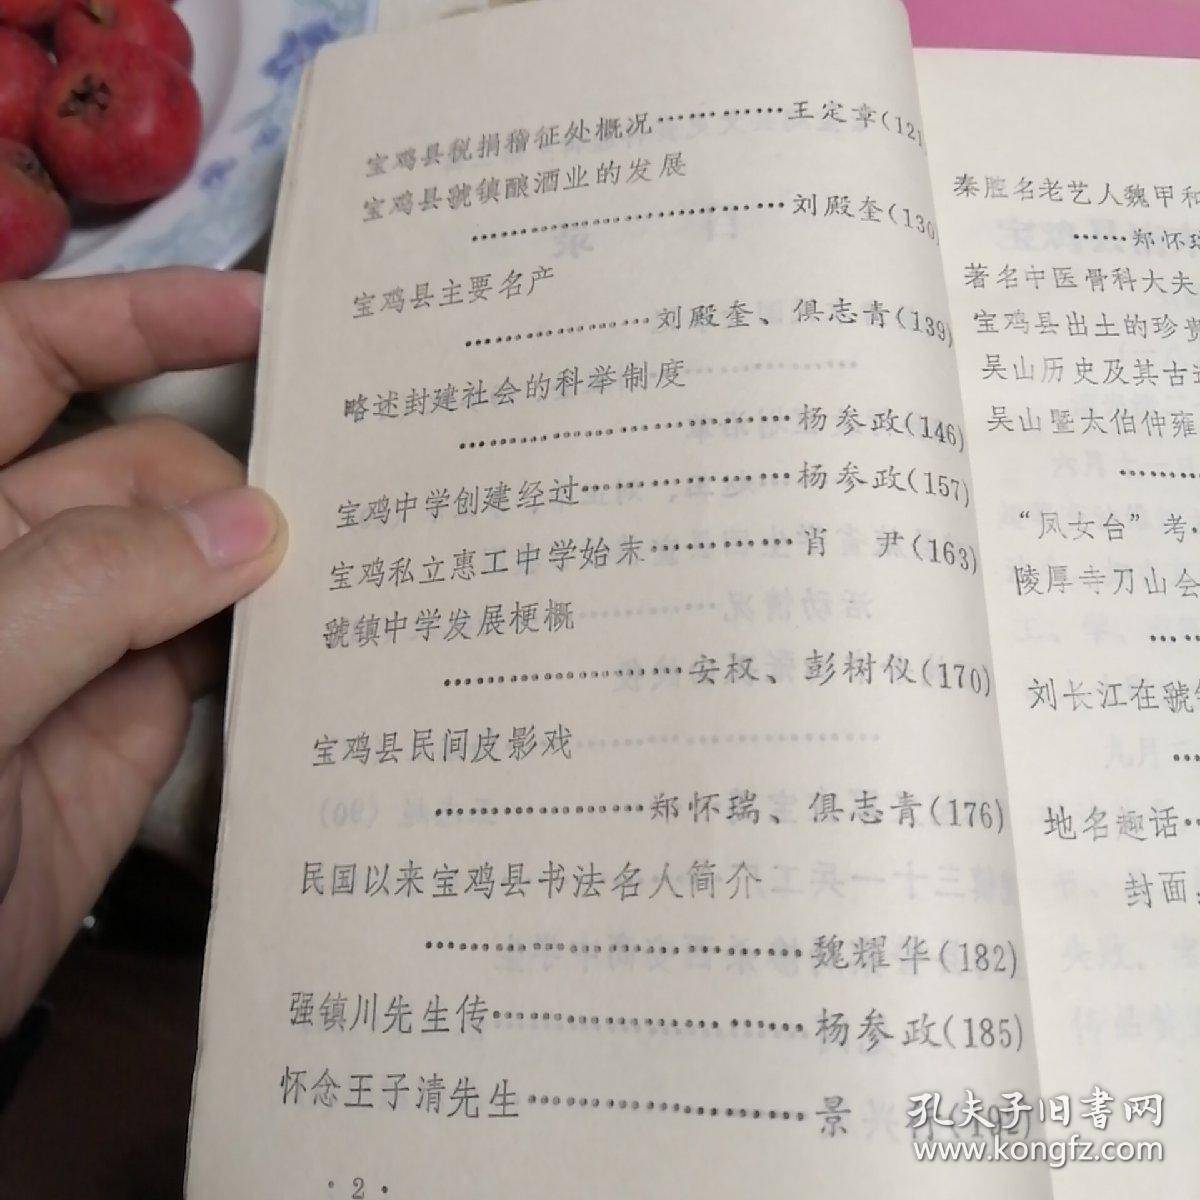 宝鸡县税捐稽征处概况…………王定章(121)
宝鸡县虢镇酿酒业的发展
…………………………刘殿奎(130)
宝鸡县主要名产
………………刘殿奎、俱志青(139)
略述封建社会的科举制度
…………………………杨参政(146)
宝鸡中学创建经过………………杨参政(157)
宝鸡私立惠工中学始末…………肖 尹(163)
虢镇中学发展梗概
…………………安权、彭树仪(170)
宝鸡县民间皮影戏
………………郑怀瑞、俱志青(176)
民国以来宝鸡县书法名人简介
…………………………魏耀华(182)
强镇川先生传……………………杨参政(185)
怀念王子清先生…………………景
·2·
秦腔名老艺人魏甲和
……郑怀瑞
著名中医骨科大夫
宝鸡县出土的珍贵
吴山历史及其古
吴山暨太伯仲雍
………
“凤女台”考…
陵厚寺刀山会
……
刘长江在虢镇
…
地名趣话…
封面
孔夫子旧书网
www.kongfz.com